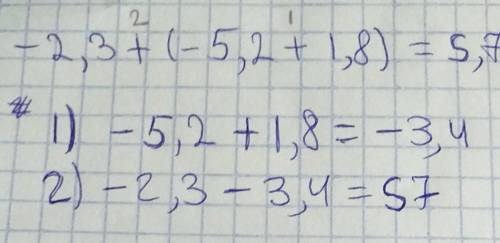 2 1
-2,3+(-5,2+1,8)=5,7
1) -5,2+1,8=-3,4
2) -2,3-3,4=57